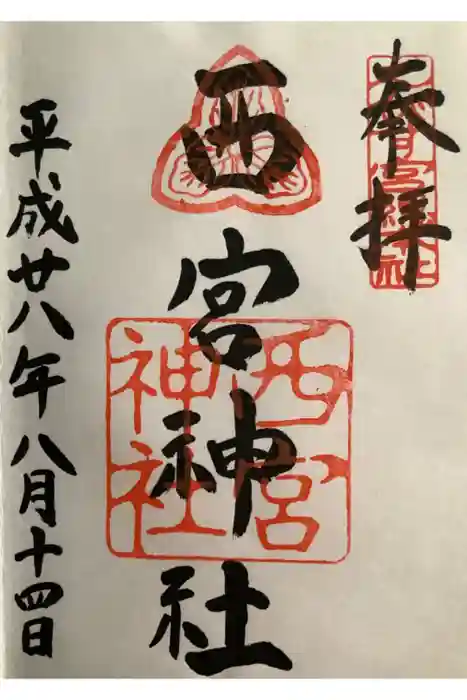 奉拝
西宮神社
西宮
神社
平成廿八年八月十四日